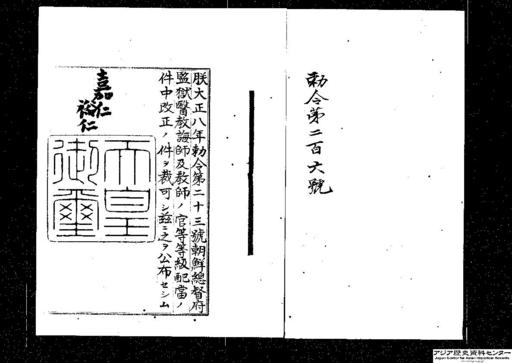 勅令第二百六號
朕大正八年勅令第二十三號朝鮮總督府
監獄醫教誨師及教師ノ官等等級配當ノ
件中改正ノ件ヲ裁可シ茲ニ之ヲ公布セシム
嘉仁
裕仁
天皇
御璽
アジア歴史資料センター
Japan Center for Asian Historical Records